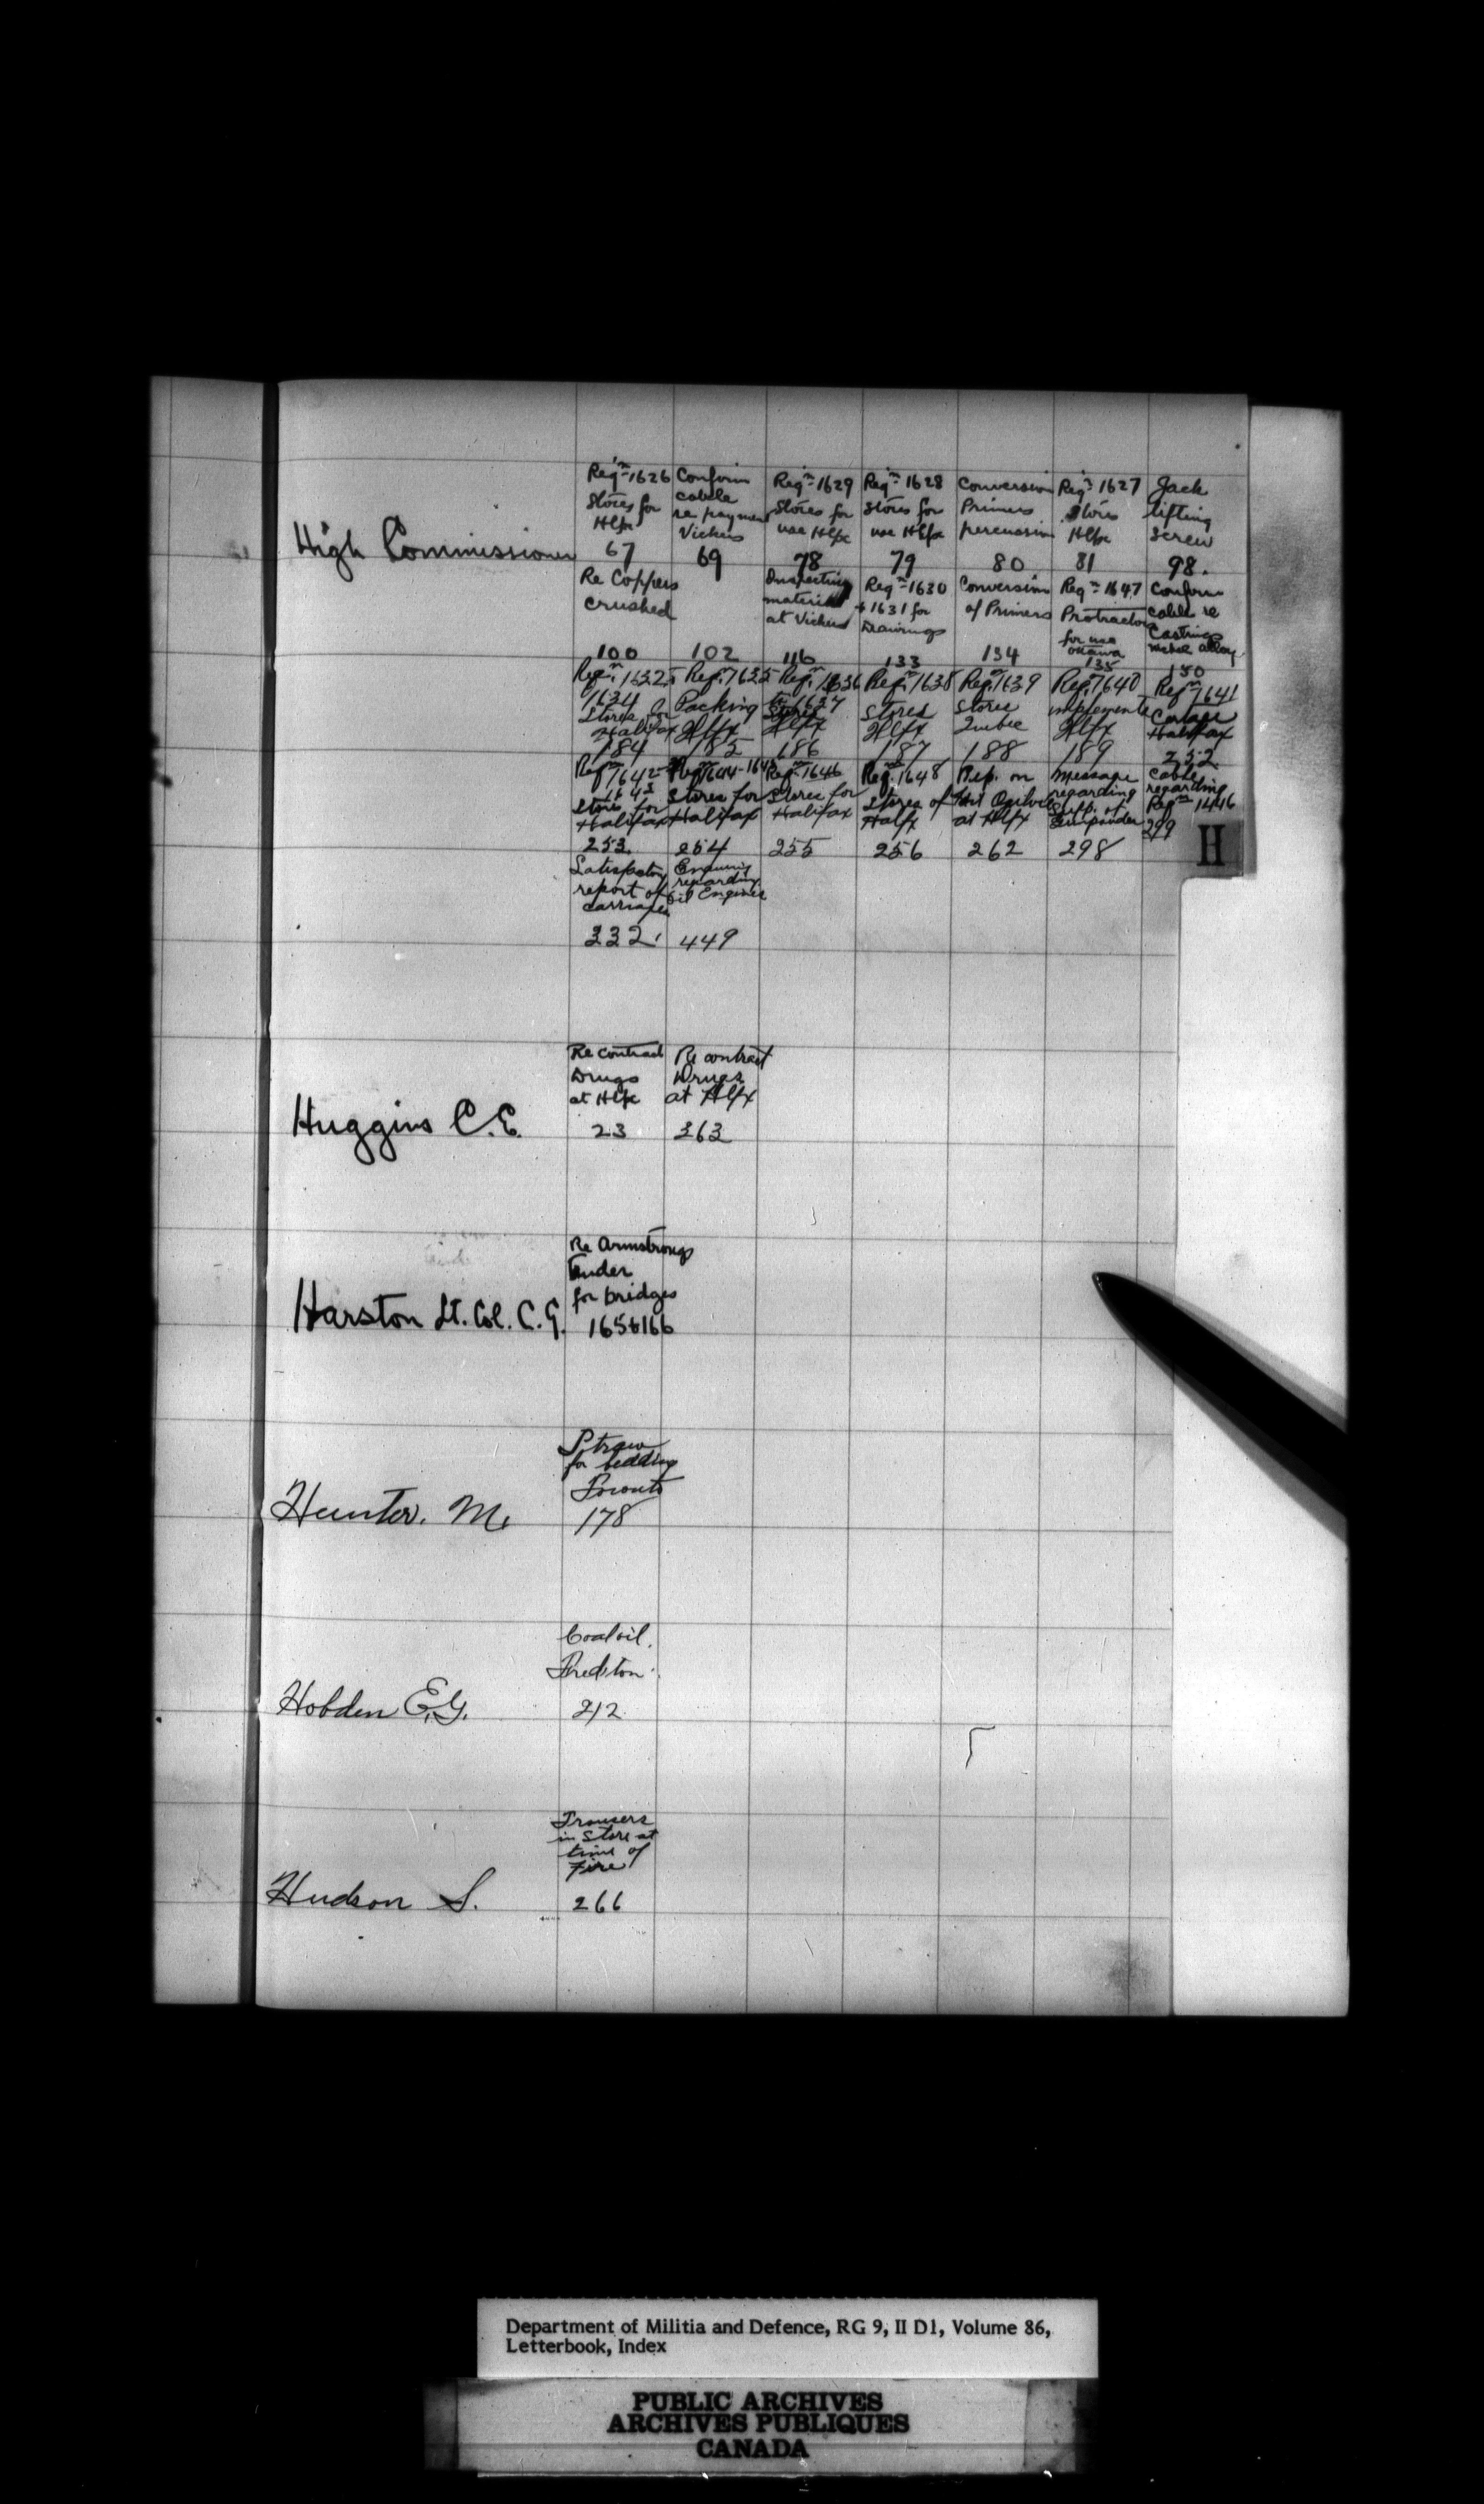 High Commissioner
Reqn 1626
Stores for
Hlfx
67
Confirm
cable
re payment
Vickers
69
Reqn 1629
Stores for
use Hlfx
78
Reqn 1628
Stores for
use Hlfx
79
Conversion
Primers
percussion
80
Reqn 1627
Stores
Hlfx
81
Jack
lifting
screw
98.
Re Coppers
crushed
100
102
Inspecting
material
at Vickers
116
Reqn 1630
+ 1631 for
Drawings
133
Conversion
of Primers
134
Reqn 1647
Protractors
for use
Ottawa
135
Confirm
cable re
Castings
metal alloy
150
Reqn 1632
1634
Stores for
Halifax
184
Reqn 1635
Packing
Hlfx
185
Reqn 1636
1637
Stores
Hlfx
186
Reqn 1638
Stores
Hlfx
187
Reqn 1639
Stores
Quebec
188
Reqn 1640
implements
Hlfx
189
Reqn 1641
Halifax
252
Reqn 1642
1643
Stores for
Halifax
253
Reqn 1644-1645
Stores for
Halifax
254
Reqn 1646
Stores for
Halifax
255
Reqn 1648
Stores of
Halfx
256
Rep. on
Ogilvie
at Hlfx
262
Message
regarding
Supp. of
Gunpowder
298
Cable
regarding
Reqn 1446
299
H
Satisfactory
report of
carriages
332.
Enquiry
regarding
Oil Engines
449
Huggins C.E.
Re contract
Drugs
at Hlfx
23
Re contract
Drugs
at Hlfx
363
Harston Lt. Col. C.G.
Re Armstrong
Tender
for bridges
165+166
Hunter. M.
Straw
for bedding
Toronto
178
Hobden E.G.
Coal oil.
Fredton.
212
Hudson S.
Trousers
in Store at
time of
Fire
266
Department of Militia and Defence, RG 9, II D1, Volume 86,
Letterbook, Index
PUBLIC ARCHIVES
ARCHIVES PUBLIQUES
CANADA